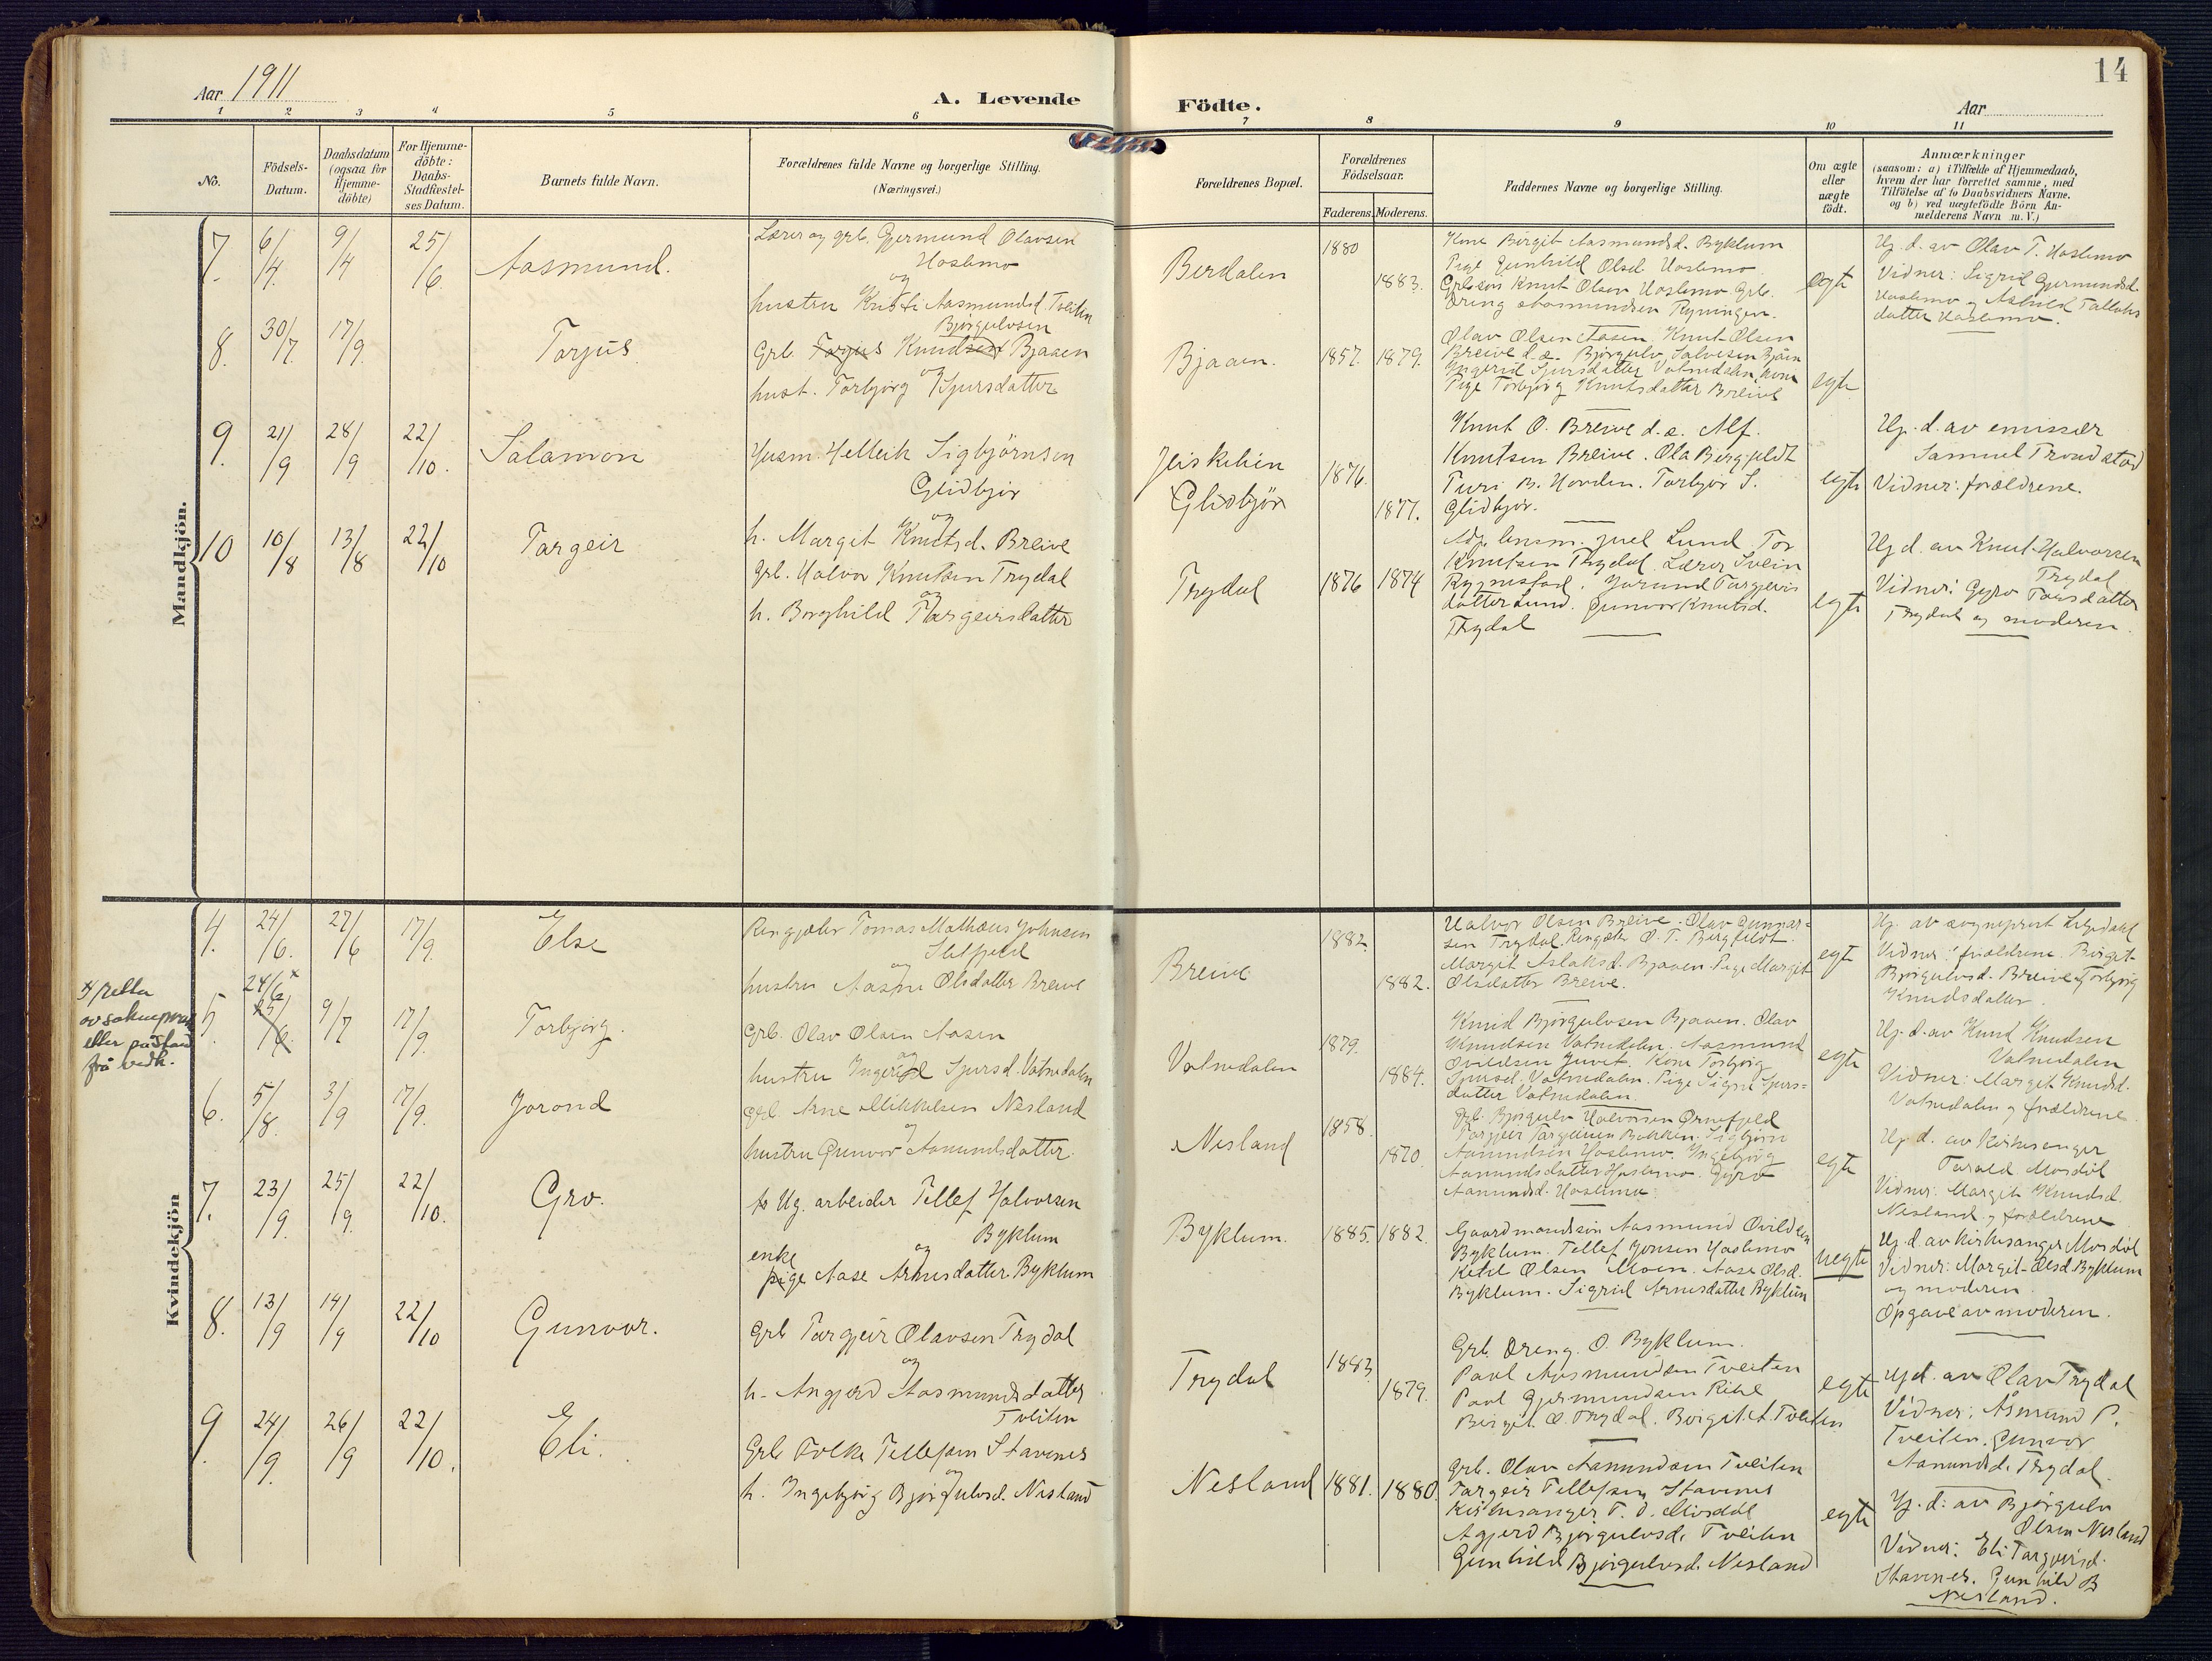 14
Aar 1911
A. Levende
Födte.
Aar
1 2 3 4 5 6 7 8 9 10 11
No.
Födsels-Datum.
Daabsdatum (ogsaa for Hjemme-döbte)
For Hjemme-döbte: Daabs-Stadfæstel-ses Datum.
Barnets fulde Navn.
Forældrenes fulde Navne og borgerlige Stilling.
(Næringsvei.)
Forældrenes Bopæl.
Forældrenes Födselsaar.
Faderens. Moderens.
Faddernes Navne og borgerlige Stilling.
Om ægte eller uægte födt.
Anmærkninger
(saasom: a) i Tilfælde af Hjemmedaab,
hvem der har forrettet samme, med
Tilföielse af to Daabsvidners Navne.
og b) ved uægtefödte Börn An-
melderens Navn m. V.)
Mandkjön.
7. 6/4 9/4 25/6 Aasmund.
Lærer og grb. Gjermund Olavsen
Hoslemo
og
hustru Kristi Aasmundsd. Tveiten
Berdalen 1880 1883.
Kone Birgit Aasmundsd. Byklum
Pige Gunhild Olsd. Hoslemo
Grbsøn Knut Olsen Hoslemo Grb.
Dreng Aasmundsen Rynningen.
egte
Hj. d. av Olav T. Hoslemo
Vidner: Sigrid Gjermundsd.
Hoslemo og Ashild Tallaks
datter Hoslemo.
8. 30/7 17/9. Torjus
Bjørgulvsen
Grb. Torjus Knudsen Bjaaen
og
hust. Torbjørg Sjursdatter
Bjaaen. 1857. 1879.
Olav Olsen Aasen. Knut Olsen
Breive d.æ. Bjørgulv Salvesen Bjåen
Ingerid Sjursdatter Vatnedalen, kone
Pige Torbjørg Knutsdatter Breive
egte
9. 21/9 28/9 22/10. Salamon
Husm. Helleik Sigbjørnsen
Glidbjør
og
h. Margit Knutsd. Breive
Glidbjör 1876. 1877.
Knut O. Breive d.æ. Alf.
Knutsen Breive. Ola Bergfeldt
Turi B. Hovden. Torbjør S.
Glidbjør.
egte
Hj. d. av emissær
Samuel Trondstad
Vidner: forældrene.
10 10/8 13/8 22/10 Targeir
grb. Halvor Knutsen Trydal
og
h. Borghild Targeirsdatter
Trydal 1876 1874
Adj. lensm. Juel Lund. Tor
Knutsen Trydal. Lærer Svein
Rygnestad. Jorund Targjeirs
datter Lund. Gunvor Knutsd.
Trydal
egte
Hj d. av Knut Halvorsen
Trydal
Vidner: Gyro Torsdatter
Trydal og moderen.
Kvindekjön
4. 24/6. 27/6 17/9. Else
Ringjæter Tomas Mathæus Johnsen
og
hustru Aasne Olsdatter Breive
Breive 1882. 1882.
Halvor Olsen Breive. Olav Gunnar-
sen Trydal. Ringjæter O. T. Bergfeldt.
Margit Aslaksd. Bjaaen. Pige Margit
Olsdatter Breive.
egte
Hj. av sogneprest
Vidner: forældrene. Birgit
Bjørgulvsd. Breive og Torbjørg
Knudsdatter.
x) retta
av soknepresten
etter påstand
frå vedk.
5. 24/6 x 25/6 9/7 17/9. Torbjørg.
Grb. Olav Olsen Aasen
og
hustru Ingerid Sjursd. Vatnedalen
Vatnedalen 1879. 1884.
Knud Bjørgulvsen Bjaaen. Olav
Knudsen Vatnedalen. Aasmund
Juvet. Kone Torbjørg
Sjursd. Vatnedalen. Pige Signe Sjurs-
datter Vatnedalen.
egte
Hj. d. av Knud Knudsen
Vatnedalen
Vidner: Margit Knudsd.
Vatnedalen og forældrene
6. 5/8. 3/9 17/9. Jorond
Grb. Arne Mikkelsen Nesland
og
hustru Gunvor Aamundsdatter.
Nesland 1858. 1870.
Grb. Bjørgulv Halvorsen Ørnefjeld
Targjeir Targjeirsen Bakken. Sigbjørn
Aamundsen Hoslemo. Ingebjørg
Aamundsdatter Hoslemo. Gyro
Aamundsd. Hoslemo
egte
Hj d. av kirkesanger
Tarald Mosdøl
Vidner: Margit Knudsd.
Nesland og forældrene
7. 23/9. 25/9. 22/10. Gro.
Ug. arbeider Tellef Halvorsen
Byklum
og
enke
pige Aase Arnesdatter Byklum
Byklum. 1885. 1882.
Gaardmandsøn Aasmund
Byklum. Tellef Jonsen Hoslemo
Ketil Olsen Moen. Aase Olsd.
Byklum. Sigrid Arnesdatter Byklum
uegte
Hj. d. av kirkesanger Mosdøl
Vidner: Margit Olsd. Byklum
og moderen.
Opgave av moderen.
8. 13/9 14/9 22/10 Gunvor.
Grb Targjeir Olavsen Trydal
og
h. Angjerd Aasmundsdatter
Tveiten
Trydal 1883. 1879.
Grb. Dreng. O. Byklum.
Pavl Aasmundsen Tveiten
Pavl Gjermundsen
Birgit O. Trydal. Birgit A. Tveiten
egte
Hj d. av Olav Trydal
Vidner: Åsmund P.
Tveiten. Gunvor
Aanundsd. Trydal.
9. 24/9. 26/9 22/10. Eli.
Grb Folke Tellefsen Stavenes
og
h. Ingebjørg Bjørgulvsd. Nesland
Nesland 1881. 1880.
Grb. Olav Aanundsen Tveiten
Targeir Tellefsen Stavenes
Kirkesanger T. O. Mosdøl
Agjerd Bjørgulvsd. Tveiten
Gunhild Bjørgulvsd. Nesland
egte
Hj. d. av Bjørgulv
Olsen Nesland
Vidner: Eli Targjeirsd.
Stavenes. Gunhild B
Nesland.